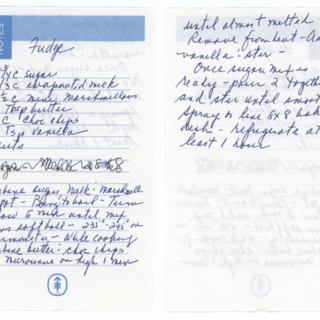 NOTES
Fudge
1/4 C sugar
/3 C evaporated milk
/2 C mini marshmallows
Tbsp butter
C choc chips
Tsp vanilla
nuts
8x8
bine sugar, milk, marshmall
pot - Bring to boil - Turn
low 6 min until mix
ms softball - 235°-245° on
rmometer - While cooking
bine butter & choc chips
microwave on high 1 min
until almost melted
Remove from heat - Ad
vanilla & stir -
Once sugar mix is
ready - pour 2 togethe
and stir until smoot
Spray or line 8x8 bak
dish - refrigerate at
least 1 hour